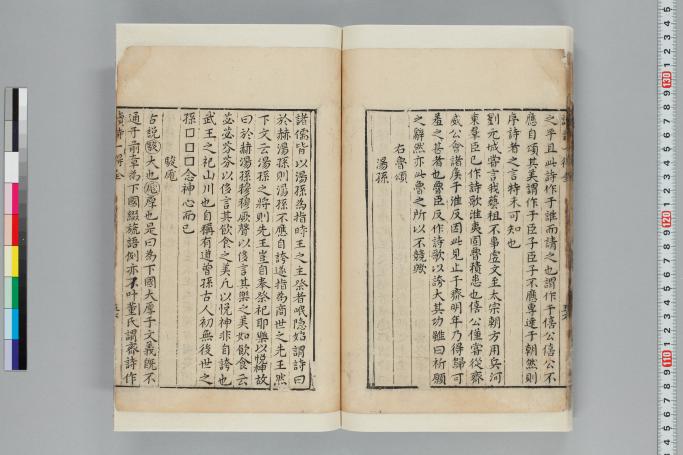 之乎且此詩作于誰而請之也謂作于僖公僖公不
應自頌其美謂作于臣子臣子不應專達于朝然則
序詩者之言特未可知也
劉元城嘗言我藝祖不事虛文至太宗朝方用兵河
東羣臣已作詩歌淮夷固魯積患也僖公僅嘗從齊
威公會諸矦于淮反因此見止于齊明年乃得歸可
羞之甚者也魯臣反作詩歌以誇大其功雖曰祈願
之辭然亦此魯之所以不競歟
右魯頌
湯孫
諸儒皆以湯孫為指時王之主祭者岷隱始謂詩曰
於赫湯孫則湯孫不應自誇遂指為商世之先王然
下文云湯孫之將則先王豈自奉祭祀耶樂以悅神故
曰於赫湯孫穆穆厥聲以侈言其樂之美如飲食云
苾苾芬芬以侈言其飲食之美凡以悅神非自誇也
武王之祀山川也自稱有道曾孫古人初無後世之
孫口口口念神心而已
駿厖
古說駿大也厖厚也是曰為下國大厚于文義旣不
通于前章為下國綴旒語例亦不叶董氏謂齊詩作